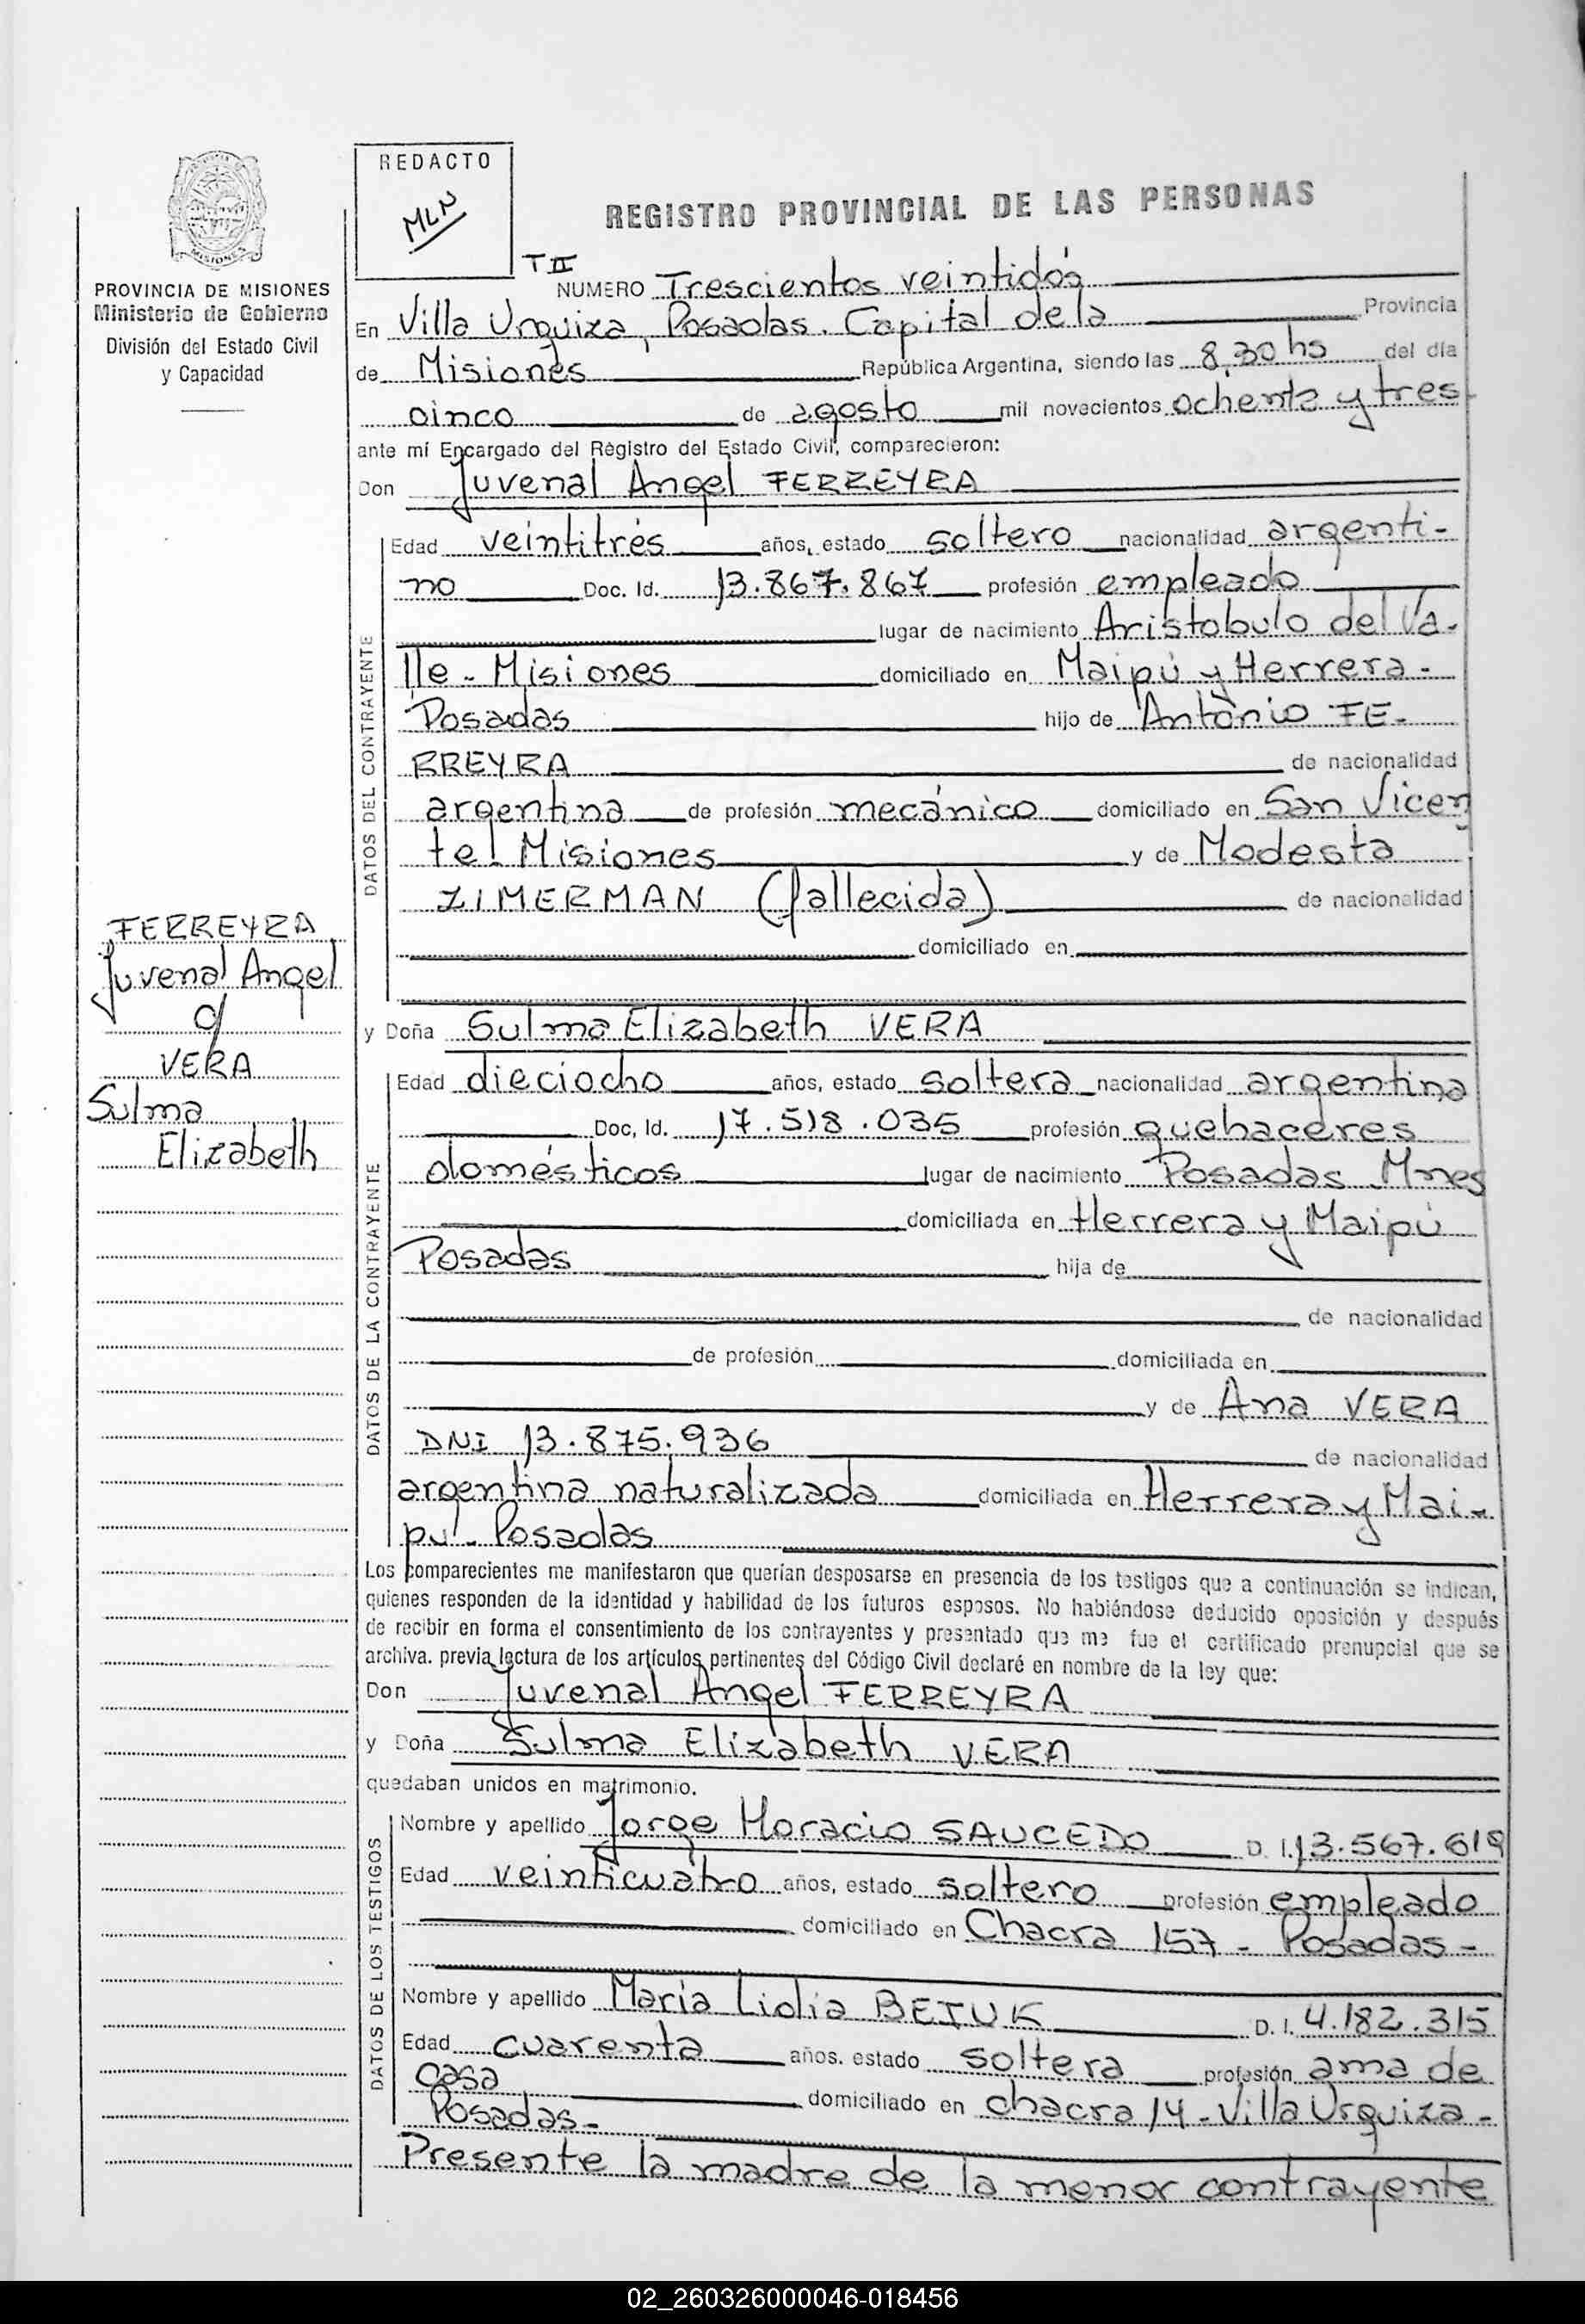 REDACTO
MLN
REGISTRO PROVINCIAL DE LAS PERSONAS
MISIONES
PROVINCIA DE MISIONES
Ministerio de Gobierno
División del Estado Civil
y Capacidad
T II
NUMERO Trescientos veintidós
En Villa Urquiza, Posadas. Capital de la Provincia
de Misiones República Argentina, siendo las 8,30 hs del día
cinco de agosto mil novecientos ochenta y tres
ante mí Encargado del Registro del Estado Civil, comparecieron:
Don Juvenal Angel FERREYRA
DATOS DEL CONTRAYENTE
Edad veintitrés años, estado soltero nacionalidad argenti-
no Doc. Id. 13.867.867 profesión empleado
lugar de nacimiento Aristobulo del Va-
lle - Misiones domiciliado en Maipú y Herrera -
Posadas hijo de Antonio FE-
RREYRA de nacionalidad
argentina de profesión mecánico domiciliado en San Vicen
te - Misiones y de Modesta
ZIMERMAN (fallecida) de nacionalidad
domiciliado en
FERREYRA
Juvenal Angel
c/
VERA
Sulma
Elizabeth
y Doña Sulma Elizabeth VERA
DATOS DE LA CONTRAYENTE
Edad dieciocho años, estado soltera nacionalidad argentina
Doc, Id. 17.518.035 profesión quehaceres
domésticos lugar de nacimiento Posadas Mnes
domiciliada en Herrera y Maipú
Posadas hija de
de nacionalidad
de profesión domiciliada en
y de Ana VERA
DNI 13.875.936 de nacionalidad
argentina naturalizada domiciliada en Herrera y Mai-
pú - Posadas
Los comparecientes me manifestaron que querían desposarse en presencia de los testigos que a continuación se indican,
quienes responden de la identidad y habilidad de los futuros esposos. No habiéndose deducido oposición y después
de recibir en forma el consentimiento de los contrayentes y presentado que me fue el certificado prenupcial que se
archiva. previa lectura de los artículos pertinentes del Código Civil declaré en nombre de la ley que:
Don Juvenal Angel FERREYRA
y Doña Sulma Elizabeth VERA
quedaban unidos en matrimonio.
DATOS DE LOS TESTIGOS
Nombre y apellido Jorge Horacio SAUCEDO D. I. 13.567.619
Edad veinticuatro años, estado soltero profesión empleado
domiciliado en Chacra 157 - Posadas -
Nombre y apellido Maria Lidia BEIUK D. I. 4.182.315
Edad cuarenta años. estado soltera profesión ama de
casa domiciliado en chacra 14 - Villa Urquiza -
Posadas -
Presente la madre de la menor contrayente
02_260326000046-018456